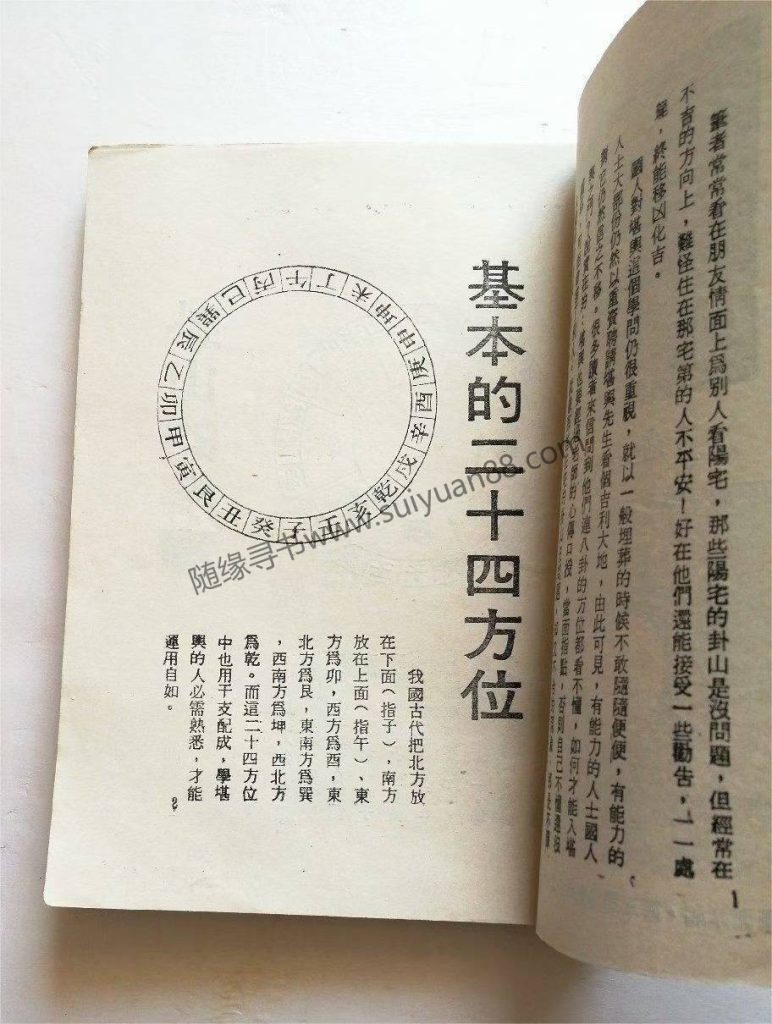 筆者常常看在朋友情面上爲別人看陽宅，那些陽宅的卦山是沒問題，但經常在
不吉的方向上，難怪住在那宅第的人不平安！好在他們還能接受一些勸告，一一處
，終能移凶化吉。
國人對堪輿這個學問仍很重視，就以一般埋葬的時候不敢隨隨便便，有能力的
人士大部份仍然以重資聘請堪輿先生看個吉利大地，由此可見，有能力的人士國人
對它仍然是不移。很多讀者來信問到他們連八卦的方位都看不懂，如何才能入堪
的心傳口授，當面指點，否則自己不懂
1
基本的二十四方位
午丁未坤申庚酉辛戌乾亥壬子癸丑艮寅甲卯乙辰巽巳丙
我國古代把北方放
在下面（指子），南方
放在上面（指午）、東
方爲卯，西方爲酉，東
北方爲艮，東南方爲巽
，西南方爲坤，西北方
爲乾。而這二十四方位
中也用干支配成，學堪
輿的人必需熟悉，才能
運用自如。
2
随缘寻书www.suiyuan88.com